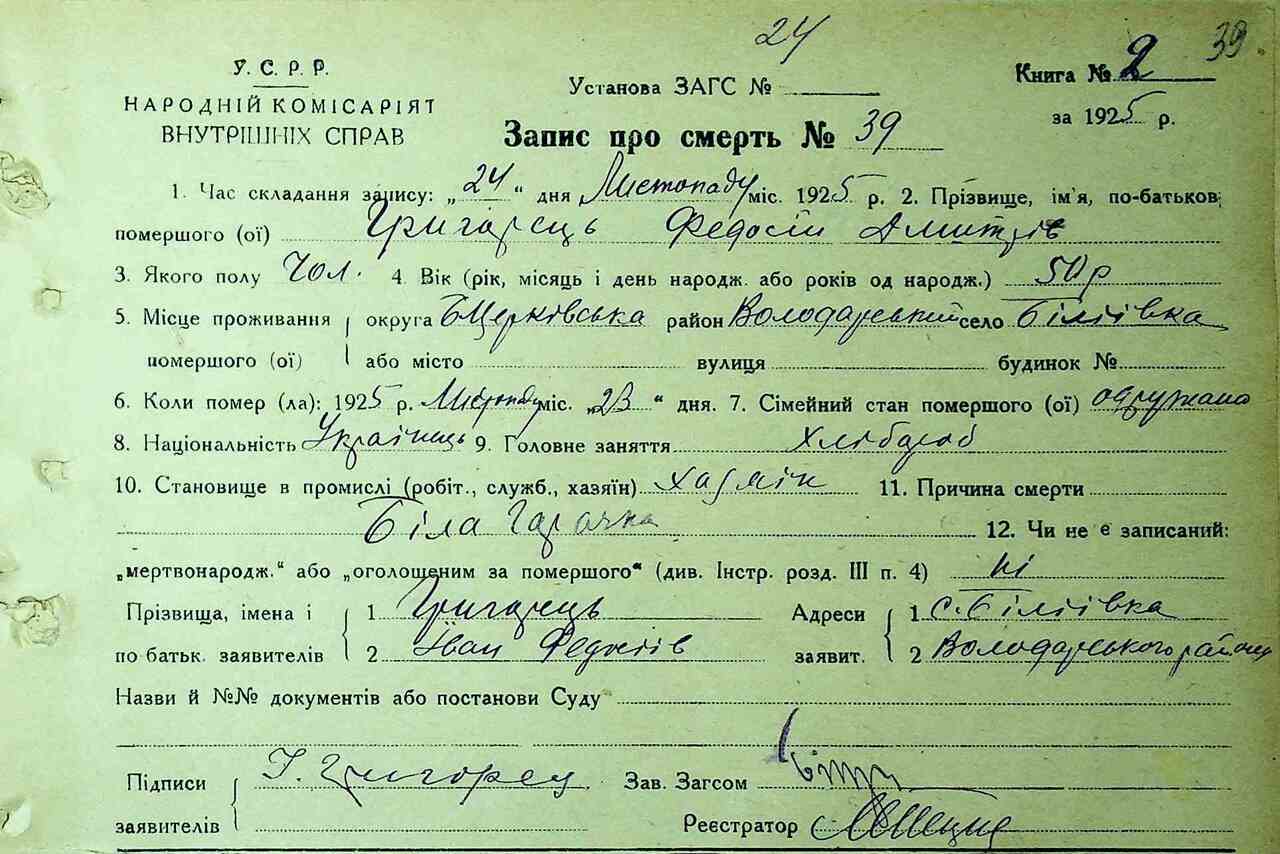 24
39
У. С. Р. Р.
НАРОДНІЙ КОМІСАРІЯТ
ВНУТРІШНІХ СПРАВ
Установа ЗАГС №
Книга № 2
за 1925 р.
Запис про смерть № 39
1. Час складання запису: „24“ дня Листопаду міс. 1925 р. 2. Прізвище, ім'я, по-батькові
помершого (ої) Григорець Федосій Дмитрів
3. Якого полу Чол. 4. Вік (рік, місяць і день народж. або років од народж.) 50 р
5. Місце проживання округа БЦерківська район Володарський село Біліївка
помершого (ої) або місто вулиця будинок №
6. Коли помер (ла): 1925 р. Листопаду міс. „23“ дня. 7. Сімейний стан помершого (ої) одружено
8. Національність Українець 9. Головне заняття Хлібороб
10. Становище в промислі (робіт., служб., хазяїн) 11. Причина смерти
Біла Гарачка 12. Чи не є записаний:
„мертвонародж.“ або „оголошеним за помершого“ (див. Інстр. розд. III п. 4) ні
Прізвища, імена і 1 Григорець Адреси 1 с. Біліївка
по батьк. заявителів 2 Іван Федосіїв заявит. 2 Володарського району
Назви й №№ документів або постанови Суду
Підписи І. Григорец Зав. Загсом
заявителів Реєстратор